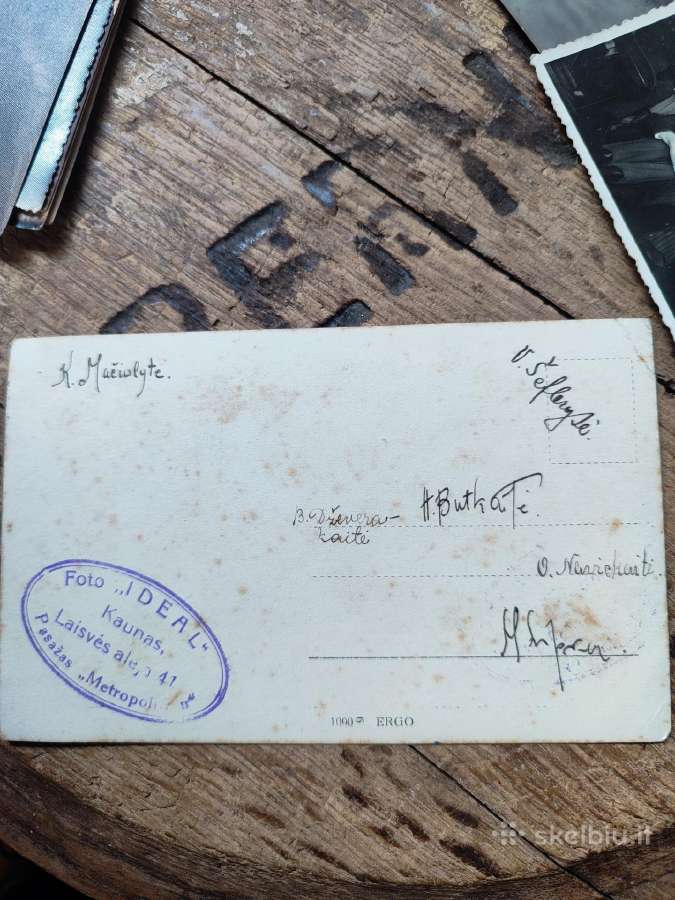 K. Mačiulytė.
V. Šeflerytė.
B. Dževera-
kaitė
A. Butkaitė.
O.
M.
Foto „IDEAL“
Kaunas,
Laisvės alėja 41
pasažas „Metropolis“
1000 ERGO
skelbiu.lt